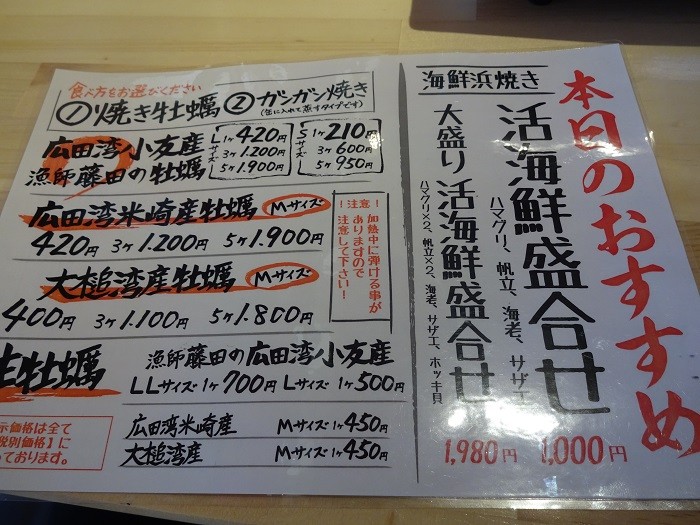 本日のおすすめ
海鮮浜焼き
活海鮮盛合せ
ハマグリ、帆立、海老、サザエ
1,000円
大盛り活海鮮盛合せ
ハマグリ×2、帆立×2、海老、サザエ、ホッキ貝
1,980円
食べ方をお選びください
①焼き牡蠣 ②ガンガン焼き
(缶に入れて蒸すタイプです)
広田湾小友産
漁師藤田の牡蠣
Lサイズ 1ヶ420円
3ヶ1.200円
5ヶ1.900円
Sサイズ 1ヶ210円
3ヶ600円
5ヶ950円
広田湾米崎産牡蠣 Mサイズ
420円 3ヶ1.200円 5ヶ1.900円
大槌湾産牡蠣 Mサイズ
400円 3ヶ1.100円 5ヶ1.800円
!注意!
加熱中に弾ける事が
ありますので
注意して下さい!
生牡蠣
漁師藤田の広田湾小友産
LLサイズ1ヶ700円 Lサイズ1ヶ500円
広田湾米崎産 Mサイズ1ヶ450円
大槌湾産 Mサイズ1ヶ450円
示価格は全て
税別価格】に
っております。